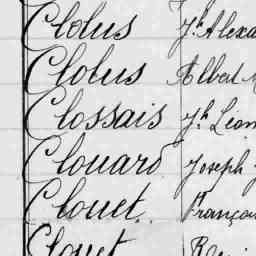 Clobus Jh Alexa
Clobus Albert
Clossais Jh Léon
Clouard Joseph J
Clouet François
Clouet